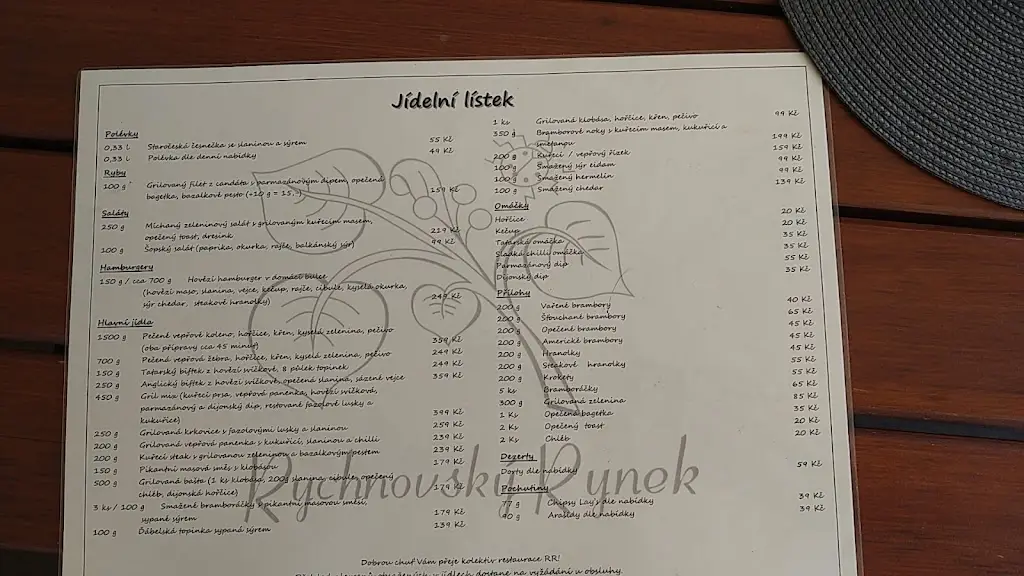 Jídelní lístek
Polévky
0,33 l Staročeská česnečka se slaninou a sýrem 55 Kč
0,33 l Polévka dle denní nabídky 49 Kč
Ryby
100 g Grilovaný filet z candáta s parmazánovým dipem, opečená
bagetka, bazalkové pesto (+10 g = 15,-) 159 Kč
Saláty
250 g Míchaný zeleninový salát s grilovaným kuřecím masem,
opečený toast, dresink 219 Kč
100 g Šopský salát (paprika, okurka, rajče, balkánský sýr) 99 Kč
Hamburgery
150 g / cca 700 g Hovězí hamburger v domácí bulce
(hovězí maso, slanina, vejce, kečup, rajče, cibule, kyselá okurka,
sýr chedar, steakové hranolky) 249 Kč
Hlavní jídla
1500 g Pečené vepřové koleno, hořčice, křen, kyselá zelenina, pečivo
(doba přípravy cca 45 minut) 359 Kč
700 g Pečená vepřová žebra, hořčice, křen, kyselá zelenina, pečivo 249 Kč
150 g Tatarský biftek z hovězí svíčkové, 8 půlek topinek 249 Kč
250 g Anglický biftek z hovězí svíčkové, opečená slanina, sázené vejce 359 Kč
450 g Gril mix (kuřecí prsa, vepřová panenka, hovězí svíčková,
parmazánový a dijonský dip, restované fazolové lusky a
kukuřice) 399 Kč
250 g Grilovaná krkovice s fazolovými lusky a slaninou 259 Kč
200 g Grilovaná vepřová panenka s kukuřicí, slaninou a chilli 239 Kč
200 g Kuřecí steak s grilovanou zeleninou a bazalkovým pestem 239 Kč
150 g Pikantní masová směs s klobásou 179 Kč
500 g Grilovaná bašta (1 ks klobása, 200g slanina, cibule, opečený
chléb, dijonská hořčice) 179 Kč
3 ks / 100 g Smažené bramboráčky s pikantní masovou směsí,
sypané sýrem 179 Kč
100 g Ďábelská topinka sypaná sýrem 139 Kč
1 ks Grilovaná klobása, hořčice, křen, pečivo 99 Kč
350 g Bramborové noky s kuřecím masem, kukuřicí a
smetanou 199 Kč
200 g Kuřecí / vepřový řízek 159 Kč
100 g Smažený sýr eidam 99 Kč
100 g Smažený hermelín 99 Kč
100 g Smažený chedar 139 Kč
Omáčky
Hořčice 20 Kč
Kečup 20 Kč
Tatarská omáčka 35 Kč
Sladká chilli omáčka 35 Kč
Parmazánový dip 55 Kč
Dijonský dip 35 Kč
Přílohy
200 g Vařené brambory 40 Kč
200 g Šťouchané brambory 65 Kč
200 g Opečené brambory 45 Kč
200 g Americké brambory 45 Kč
200 g Hranolky 45 Kč
200 g Steakové hranolky 55 Kč
200 g Krokety 55 Kč
5 ks Bramboráčky 65 Kč
300 g Grilovaná zelenina 85 Kč
1 Ks Opečená bagetka 35 Kč
2 Ks Opečený toast 20 Kč
2 Ks Chléb 20 Kč
Dezerty
Dorty dle nabídky 59 Kč
Pochutiny
77 g Chipsy Lay's dle nabídky 39 Kč
90 g Arašídy dle nabídky 39 Kč
Rychnovský Rynek
Dobrou chuť Vám přeje kolektiv restaurace RR!
obsažených v jídlech dostane na vyžádání u obsluhy.